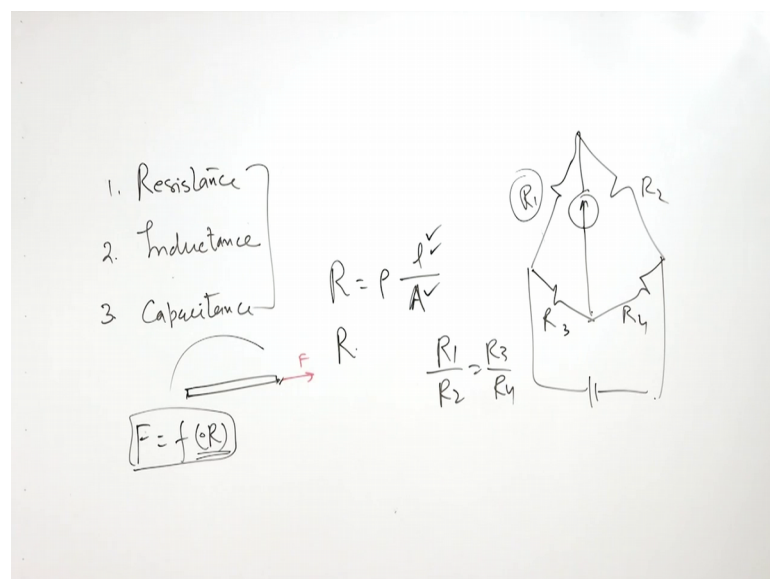 1. Resistance
2. Inductance
3 Capacitance
R = ρ l/A
R.
F
F = f (R)
R1/R2 = R3/R4
R1
R2
R3
R4